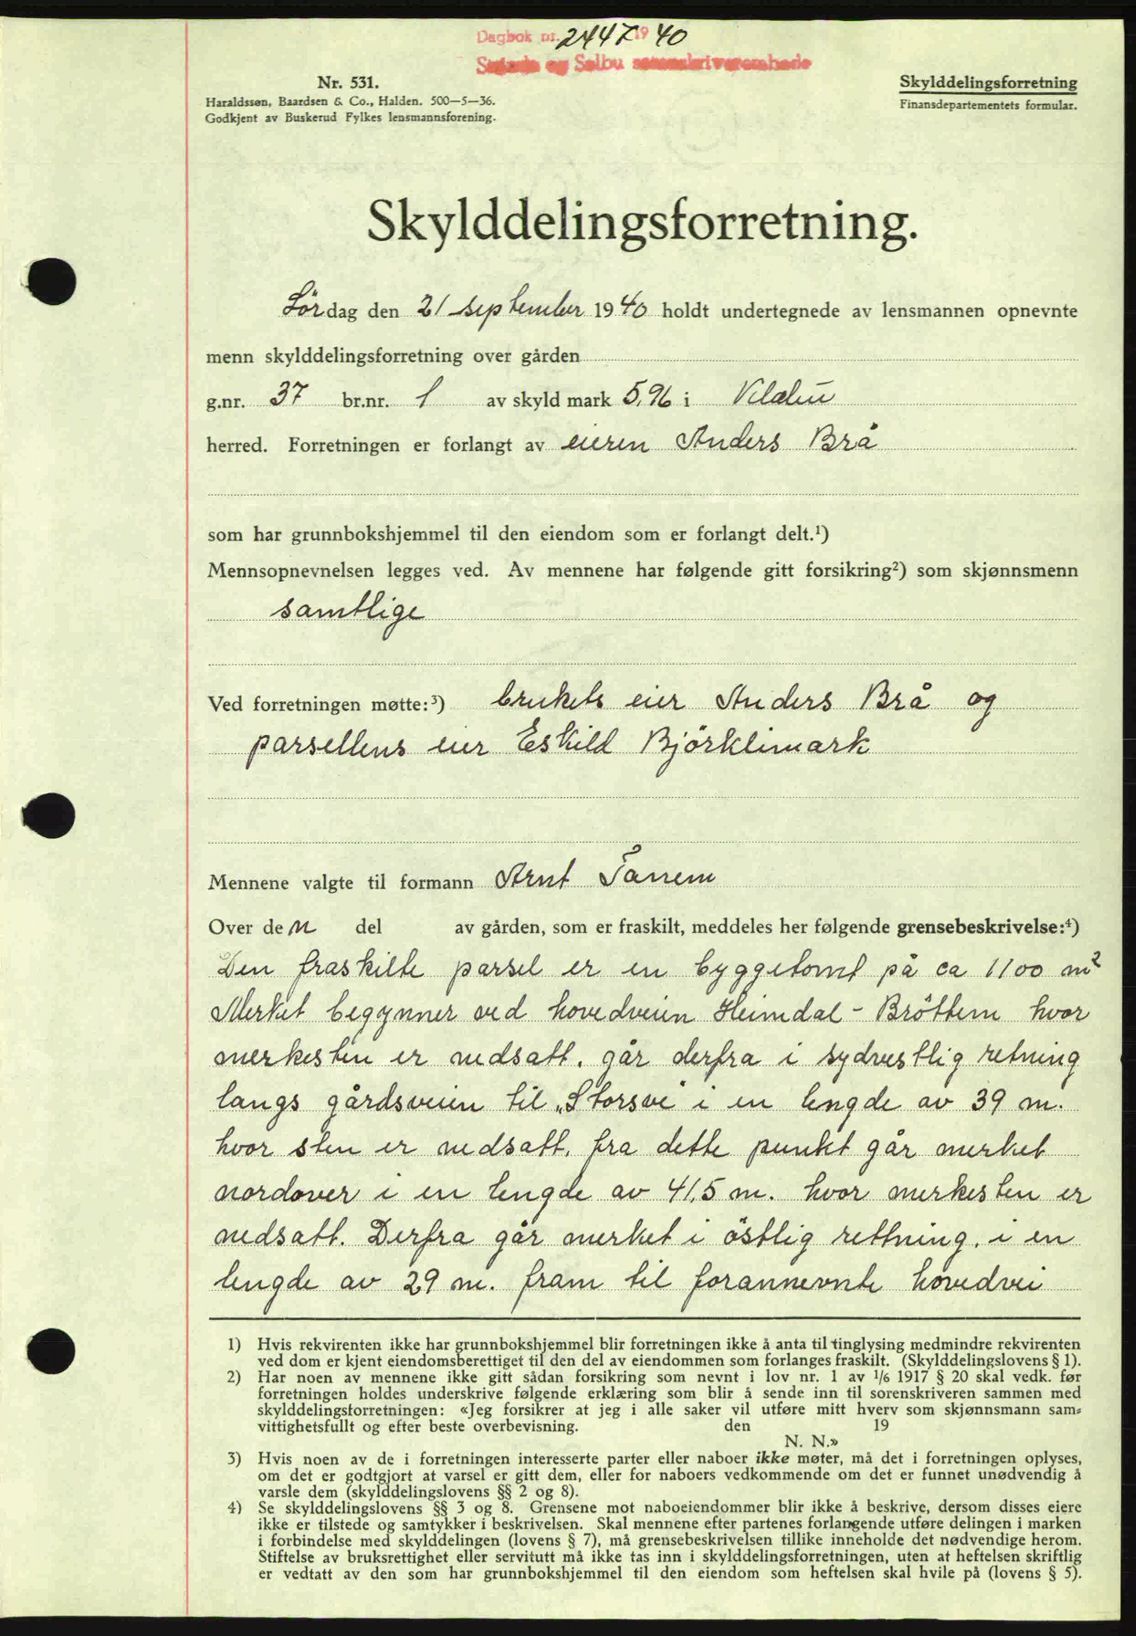 Dagbok nr. 2447 19 40
Strinda og Selbu sorenskriverembede
Nr. 531.
Haraldssøn, Baardsen & Co., Halden. 500—5—36.
Godkjent av Buskerud Fylkes lensmannsforening.
Skylddelingsforretning
Finansdepartementets formular.
Skylddelingsforretning.
Lördag den 21 september 1940 holdt undertegnede av lensmannen opnevnte
menn skylddelingsforretning over gården
g.nr. 37 br.nr. 1 av skyld mark 5,96 i
herred. Forretningen er forlangt av eieren Anders Brå
som har grunnbokshjemmel til den eiendom som er forlangt delt.¹)
Mennsopnevnelsen legges ved. Av mennene har følgende gitt forsikring²) som skjønnsmenn
samtlige
Ved forretningen møtte:³) brukets eier Anders Brå og
parsellens eier Eskild Björklimark
Mennene valgte til formann Arnt Tanem
Over den del av gården, som er fraskilt, meddeles her følgende grensebeskrivelse:⁴)
Den fraskilte parsel er en byggetomt på ca 1100 m²
Merket begynner ved hovedveien Heimdal - Bröttem hvor
merkesten er nedsatt. går derfra i sydvestlig retning
langs gårdsveien til „Storsve" i en lengde av 39 m.
hvor sten er nedsatt. fra dette punkt går merket
nordover i en lengde av 41,5 m. hvor merkesten er
nedsatt. Derfra går merket i östlig rettning. i en
lengde av 29 m. fram til forannevnte hovedvei
1) Hvis rekvirenten ikke har grunnbokshjemmel blir forretningen ikke å anta til tinglysing medmindre rekvirenten
ved dom er kjent eiendomsberettiget til den del av eiendommen som forlanges fraskilt. (Skylddelingslovens § 1).
2) Har noen av mennene ikke gitt sådan forsikring som nevnt i lov nr. 1 av 1/6 1917 § 20 skal vedk. før
forretningen holdes underskrive følgende erklæring som blir å sende inn til sorenskriveren sammen med
skylddelingsforretningen: «Jeg forsikrer at jeg i alle saker vil utføre mitt hverv som skjønnsmann sam-
vittighetsfullt og efter beste overbevisning. den 19
N. N.»
3) Hvis noen av de i forretningen interesserte parter eller naboer ikke møter, må det i forretningen oplyses,
om det er godtgjort at varsel er gitt dem, eller for naboers vedkommende om det er funnet unødvendig å
varsle dem (skylddelingslovens §§ 2 og 8).
4) Se skylddelingslovens §§ 3 og 8. Grensene mot naboeiendommer blir ikke å beskrive, dersom disses eiere
ikke er tilstede og samtykker i beskrivelsen. Skal mennene efter partenes forlangende utføre delingen i marken
i forbindelse med skylddelingen (lovens § 7), må grensebeskrivelsen tillike inneholde det nødvendige herom.
Stiftelse av bruksrettighet eller servitutt må ikke tas inn i skylddelingsforretningen, uten at heftelsen skriftlig
er vedtatt av den som har grunnbokshjemmel til den eiendom som heftelsen skal hvile på (lovens § 5).